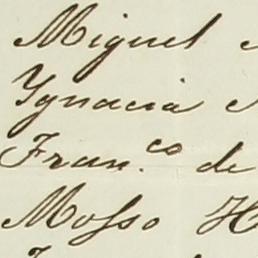 Miguel
Ygnacia
Fran.co de
Mosso H